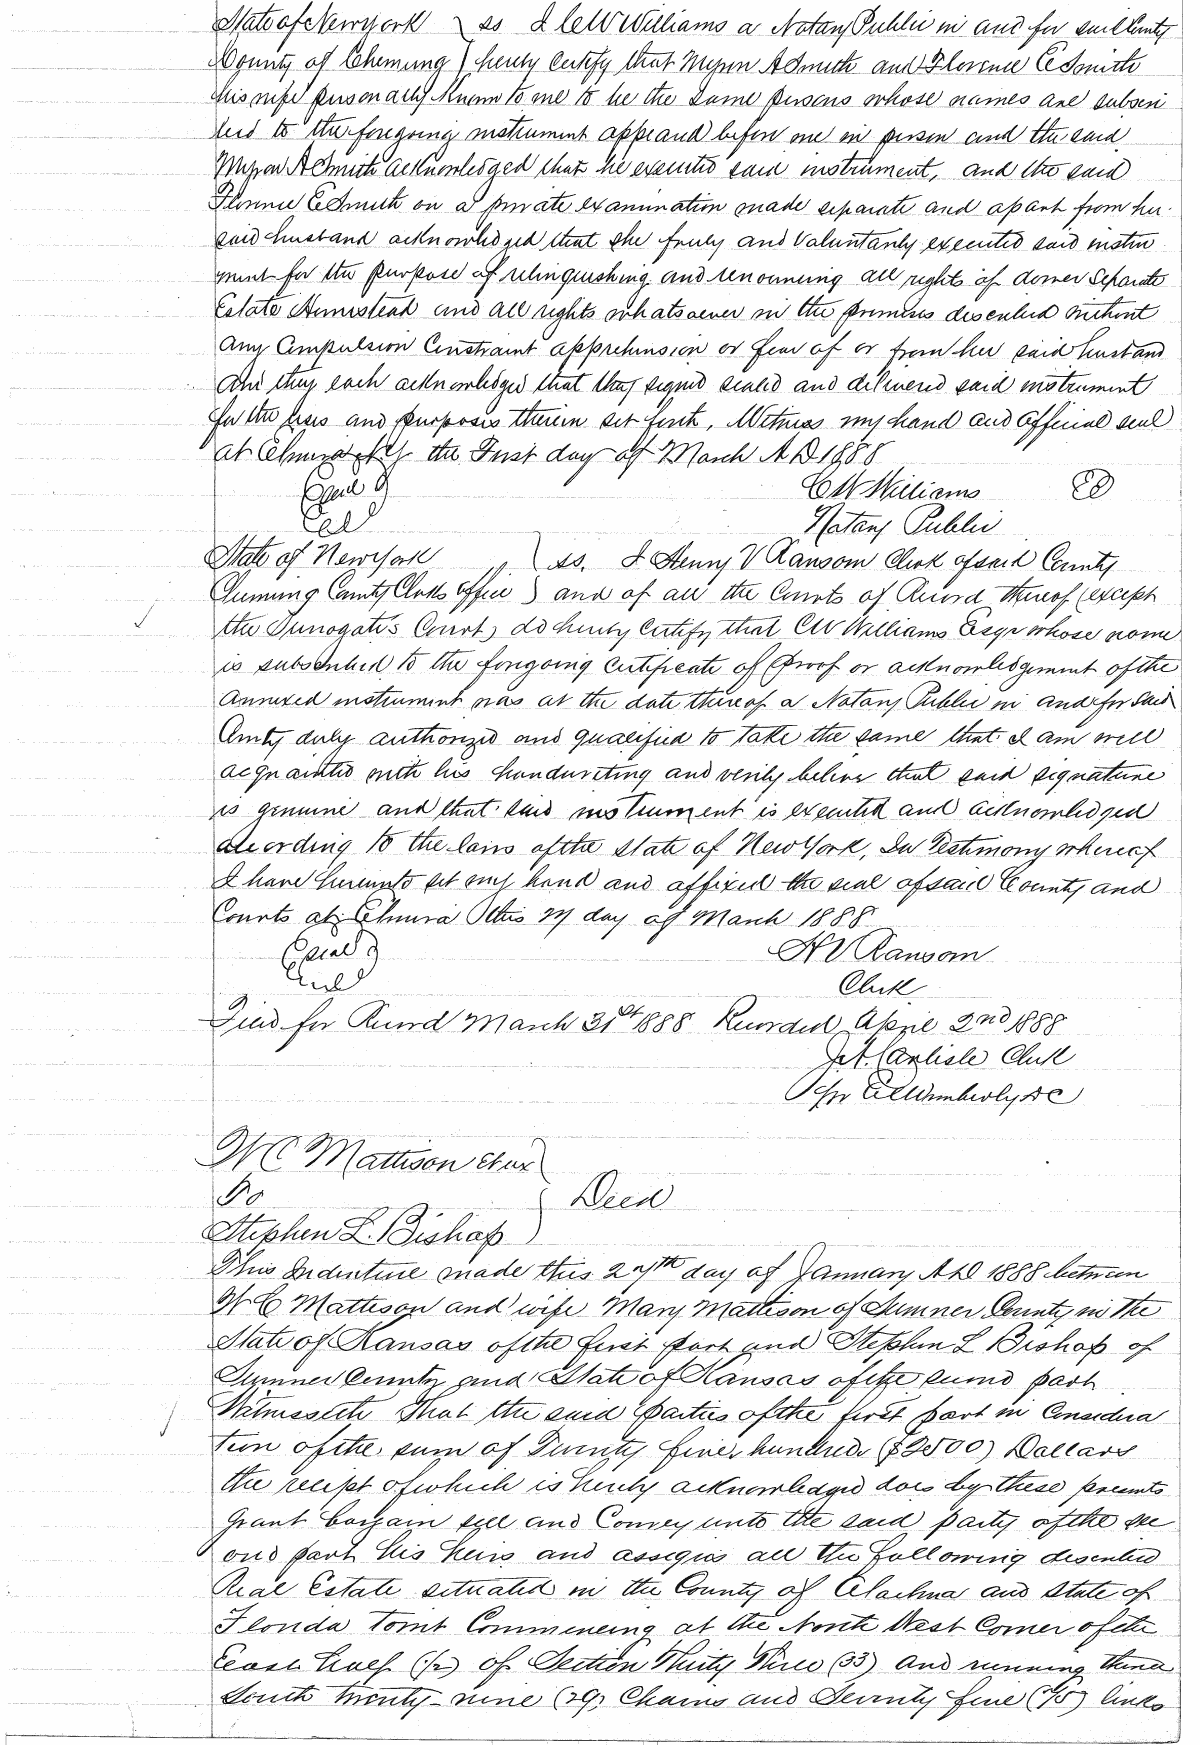 State of New York } ss I C W Williams a Notary Public in and for said County
County of Chemung } hereby Certify that Myron A Smith and Florence E Smith
his wife personally Known to me to be the same persons whose names are subscri
bed to the foregoing instrument appeared before me in person and the said
Myron A Smith acknowledged that he executed said instrument, and the said
Florence E Smith on a private examination made separate and apart from her
said husband acknowledged that she freely and Voluntarily executed said instru
ment for the purpose of relinquishing and renouncing all rights of dower Separate
Estate Homestead and all rights whatsoever in the premises described without
any Compulsion Constraint apprehension or fear of or from her said husband
and they each acknowledged that they signed sealed and delivered said instrument
for the uses and purposes therein set forth, Witness my hand and official seal
at Elmira N Y the First day of March A D 1888
C W Williams
Notary Public
State of New York } ss. I Henry V Ransom Clerk of said County
Chemung County Clerks Office } and of all the Courts of Record thereof (except
the Surrogate's Court) do hereby Certify that C W Williams Esqr whose name
is subscribed to the foregoing Certificate of Proof or acknowledgement of the
annexed instrument was at the date thereof a Notary Public in and for said
County duly authorized and qualified to take the same that I am well
acquainted with his handwriting and verily believe that said signature
is genuine and that said instrument is executed and acknowledged
according to the laws of the State of New York, In Testimony whereof
I have hereunto set my hand and affixed the seal of said County and
Courts at Elmira this day of March 1888
H V Ransom
Clerk
Filed for Record March 31st 1888 Recorded April 2nd 1888
J A Carlisle Clerk
Per Wimberly D C
W C Mattison et ux
To } Deed
Stephen L. Bishop
This Indenture made this 27th day of January A D 1888 between
W C Mattison and wife Mary Mattison of Sumner County in the
State of Kansas of the first part and Stephen L Bishop of
Sumner County and State of Kansas of the second part
Witnesseth That the said Parties of the first part in Considera
tion of the sum of Twenty five hundred ($2500) Dollars
the receipt of which is hereby acknowledged does by these presents
grant bargain sell and Convey unto the said party of the sec
ond part his heirs and assigns all the following described
Real Estate situated in the County of Alachua and State of
Florida towit Commencing at the North West Corner of the
East half (1/2) of Section Thirty Three (33) and running thence
South twenty-nine (29) Chains and Seventy five (75) links